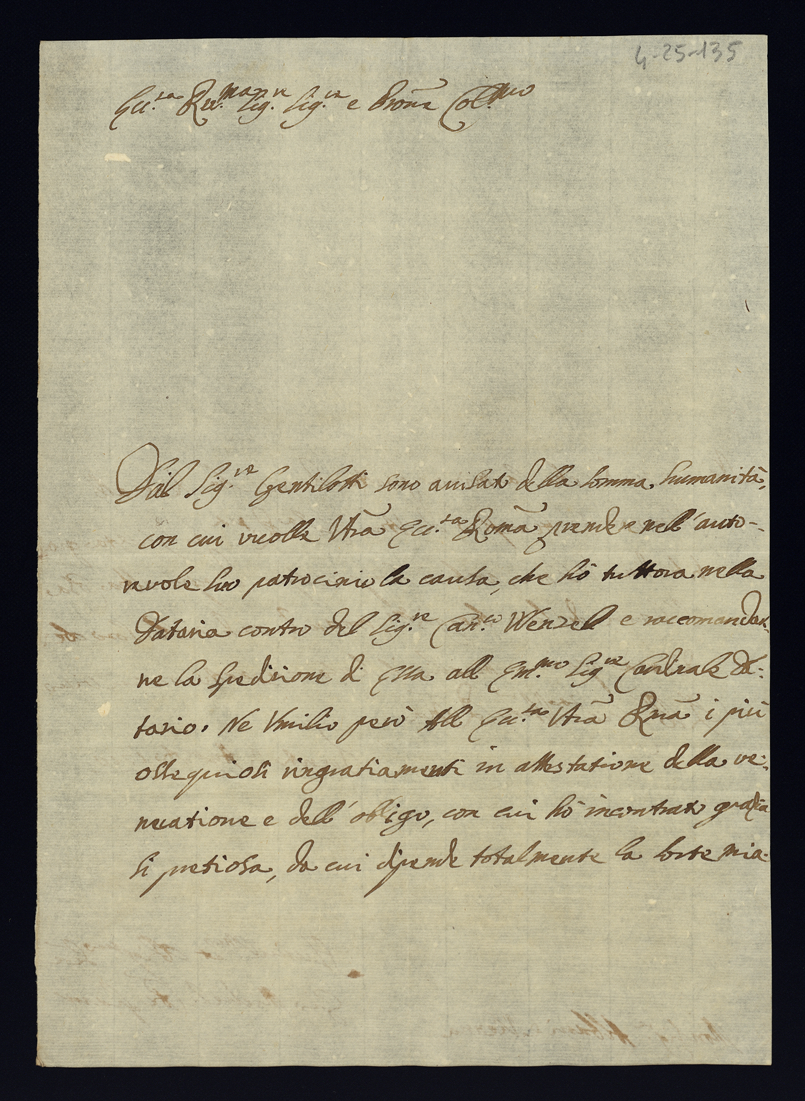 4-25-135
Ecc.za Rev.ma Sig.r Sig.re e Prone Col.mo
Dal Sig.re Gentilotti sono avisato della somma humanità,
con cui vuolle Vrã Ecc.za Revmã prendere nell'auto-
revole suo patrocinio la causa, che hò tuttora nella
Dataria contro del Sig.re Can.co Wenzel e raccomandar-
ne la spedizione di essa all Em.mo Sig.re Cardinale Da-
tario. Ne Umilio però all Ecc.za Vrã Rmã i più
ossequiosi ringratiamenti in attestatione della ve-
neratione e dell'obligo, con cui hò incontrato grazia
sì pretiosa, da cui dipende totalmente la sorte mia.